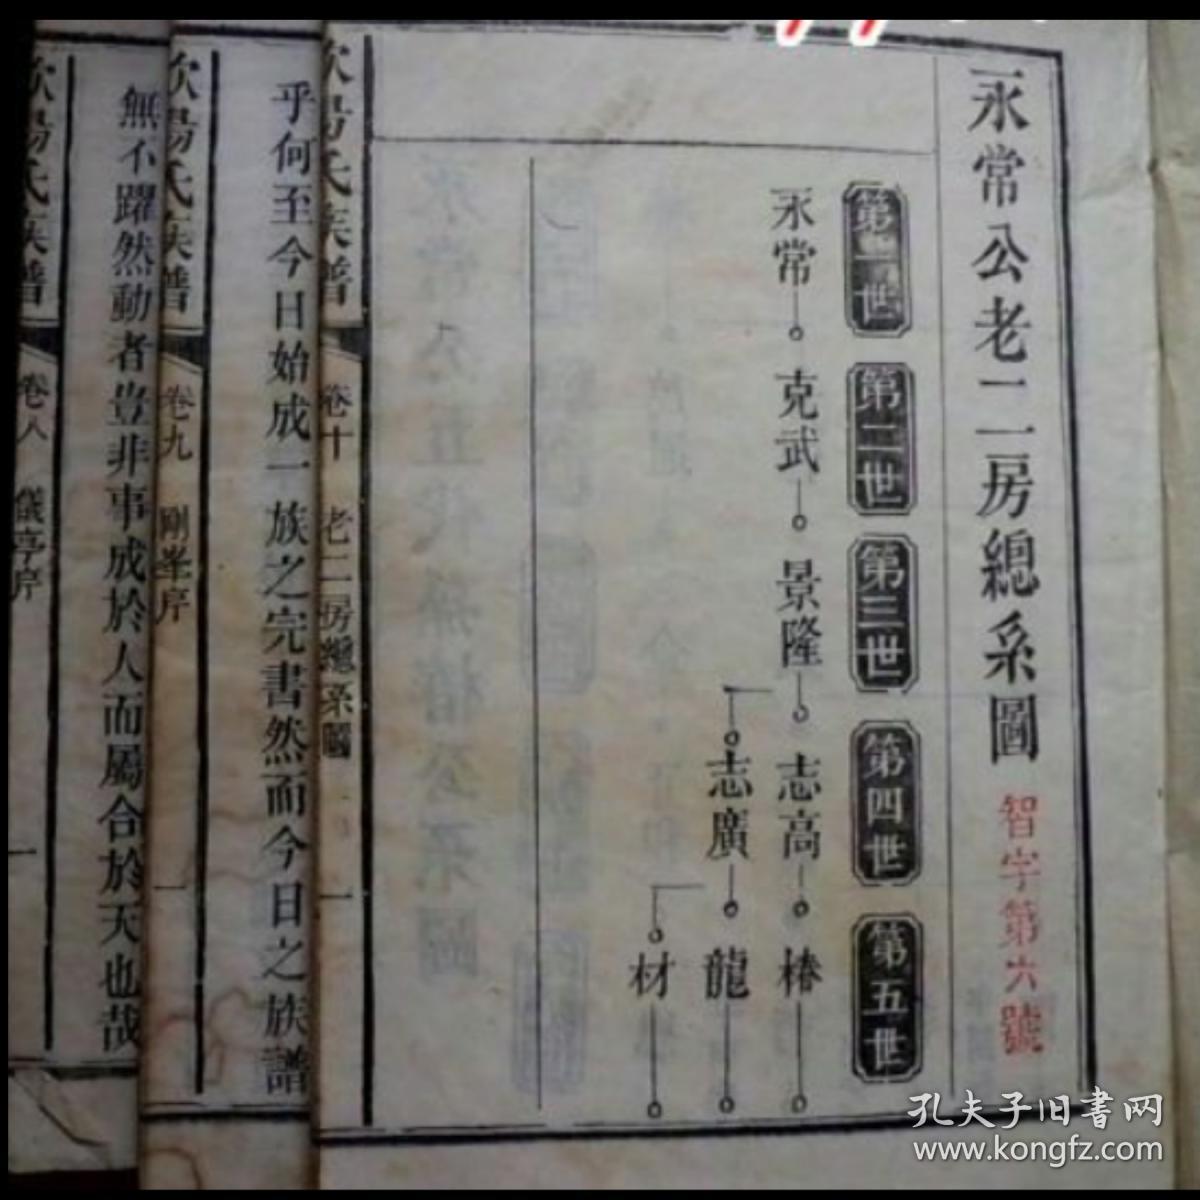 永常公老二房總系圖
智字第六號
第一世
第二世
第三世
第四世
第五世
永常 克武 景隆 志高 椿
志廣 龍
材
卷十 老二房總系圖 一
乎何至今日始成一族之完書然而今日之族譜
氏族譜
卷九 剛峯序 一
無不躍然動者豈非事成於人而屬合於天也哉
氏族譜
卷八 儀亭序 一
孔夫子旧書网
www.kongfz.com